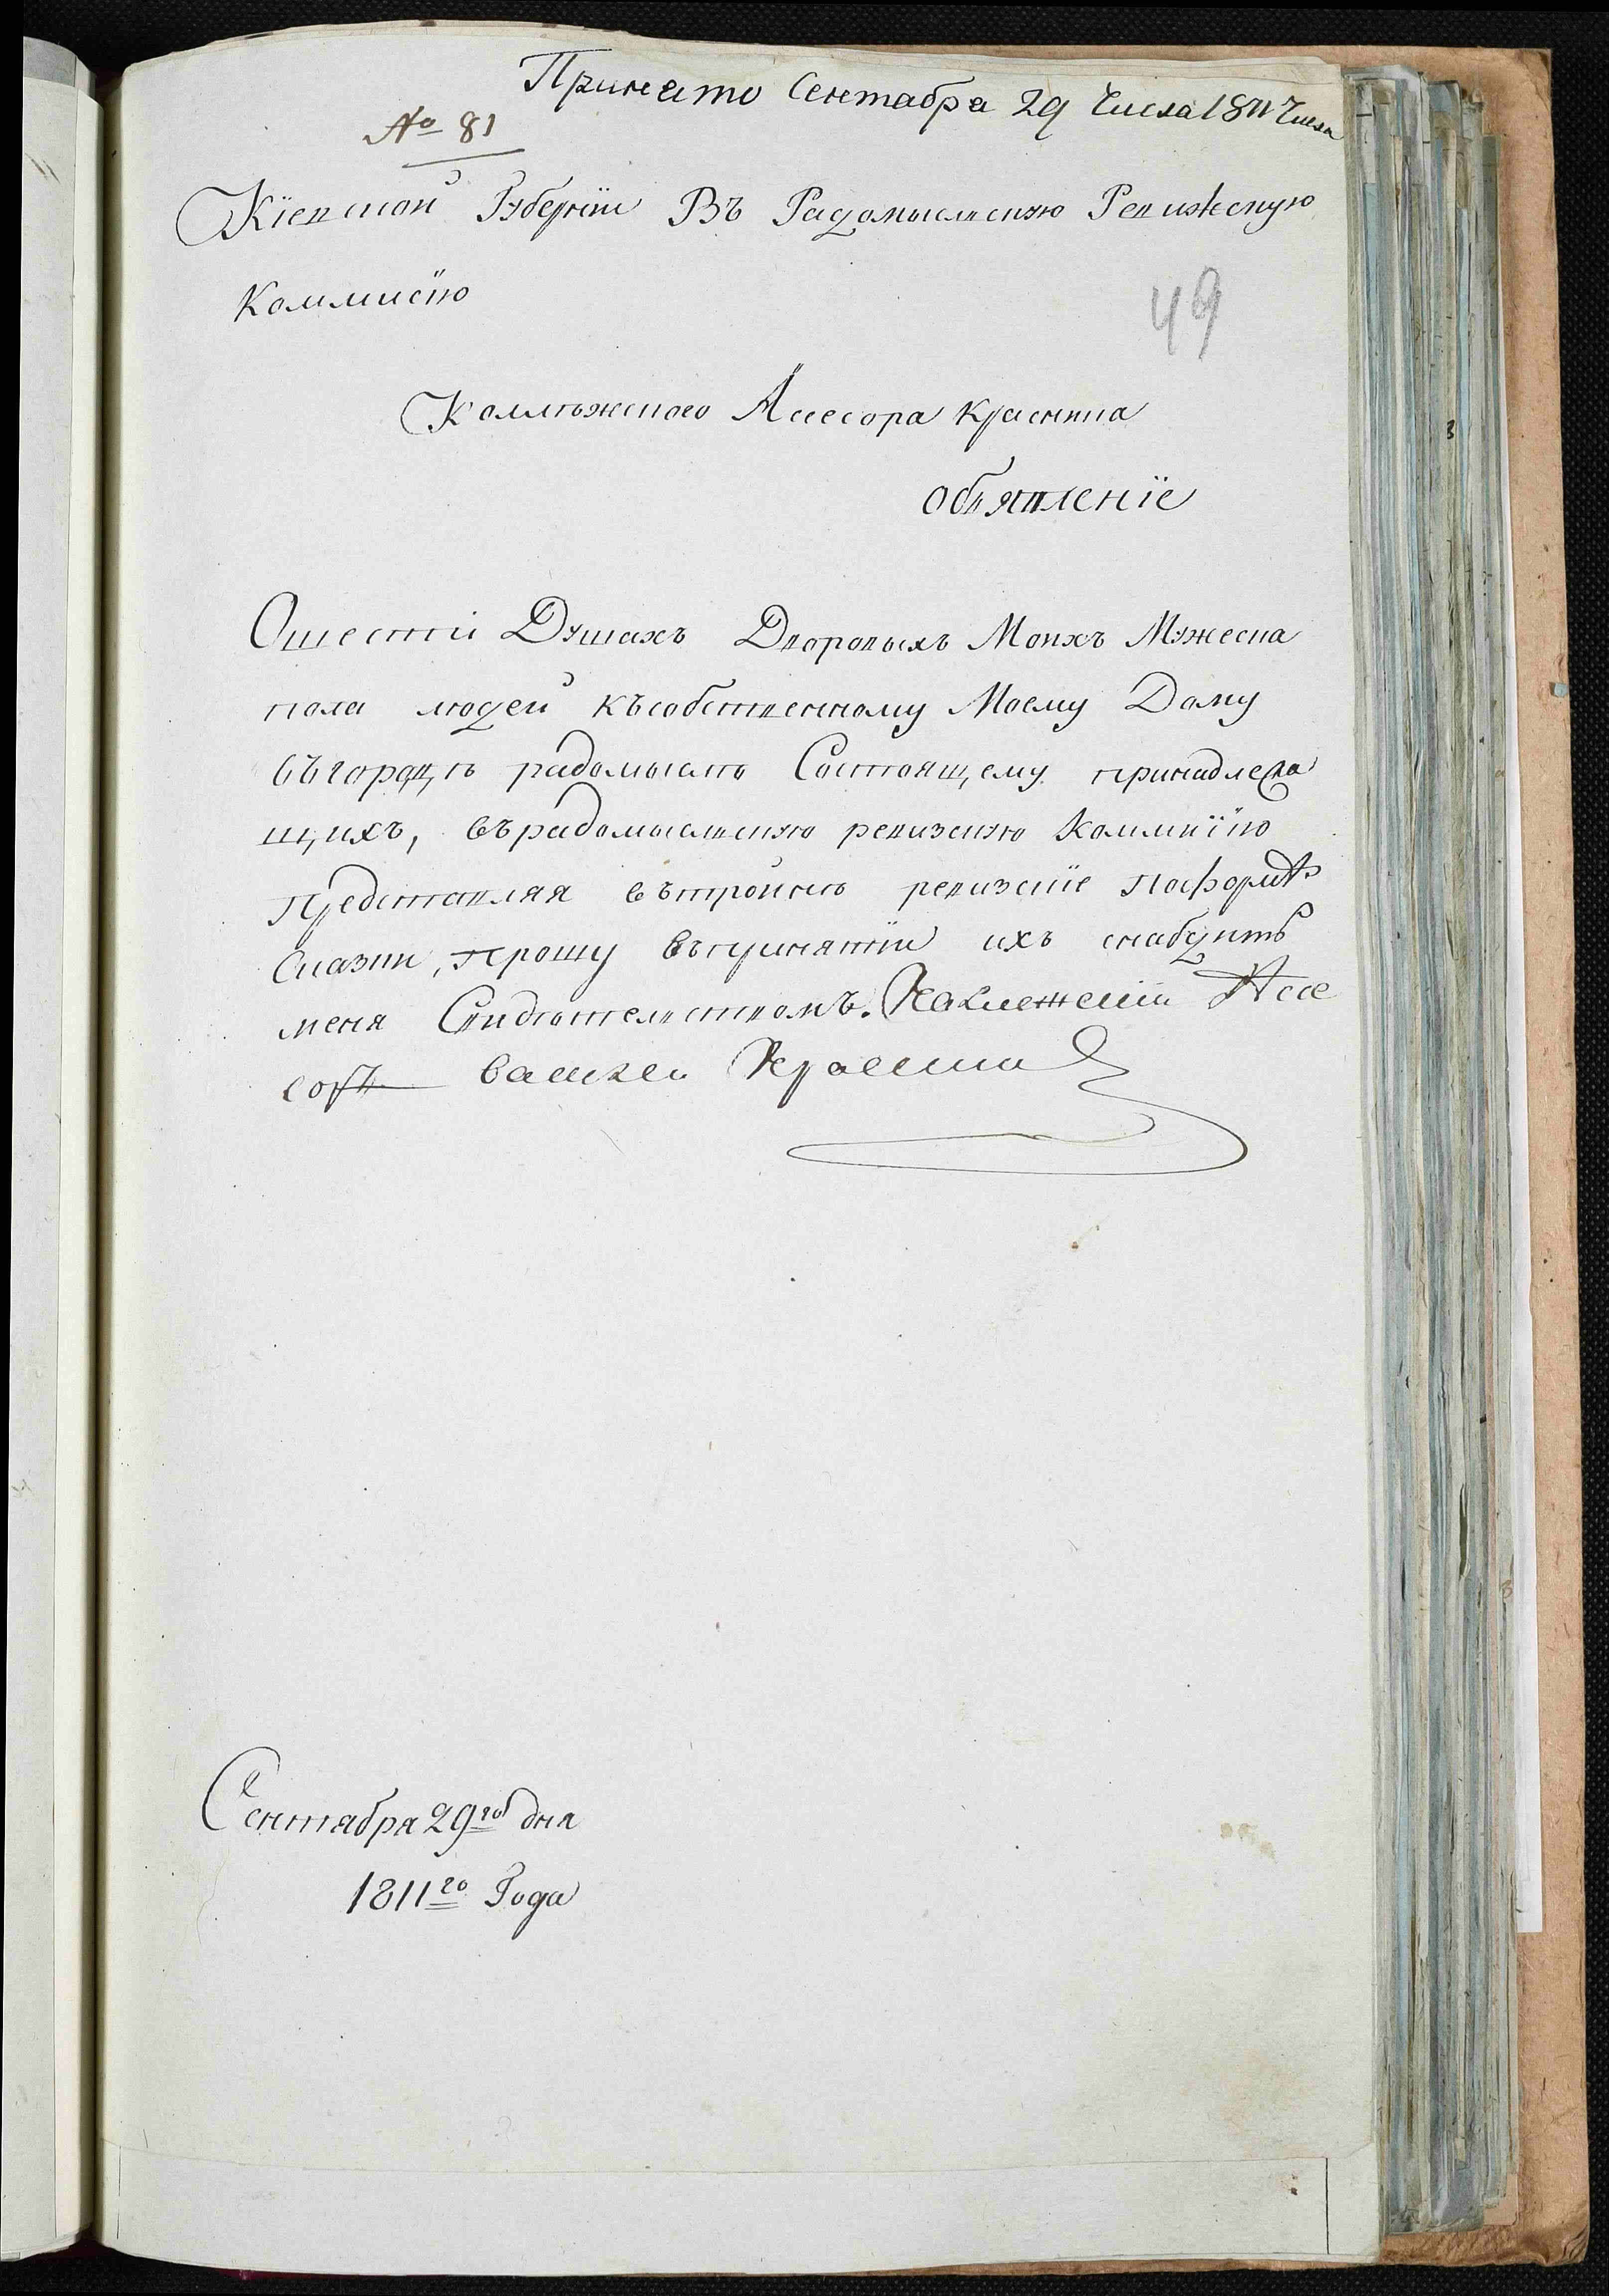 Принято Сентабра 29 Числа 1811 Числа
№ 81
Кїевской Губернїи Въ Радомысльскую Ревижскую
Коммисїю
49
Коллѣжского Асесора Краснина
Обявленїе
Ошести Душахъ Дворовыхъ Моихъ Мужеска
пола людей късобственному Моему Дому
въгородѣ радомыслѣ Состоящему принадлежа
щихъ, върадомысльскую ревизскую Коммисїю
Представляя вътройнѣ ревизскїе Поформѣ
Сказки, прошу въпринятїи ихъ снабдить
меня Свидѣтельствомъ. Колежскїй Ассе
соръ Василей
Сентября 29го дня
1811го Года